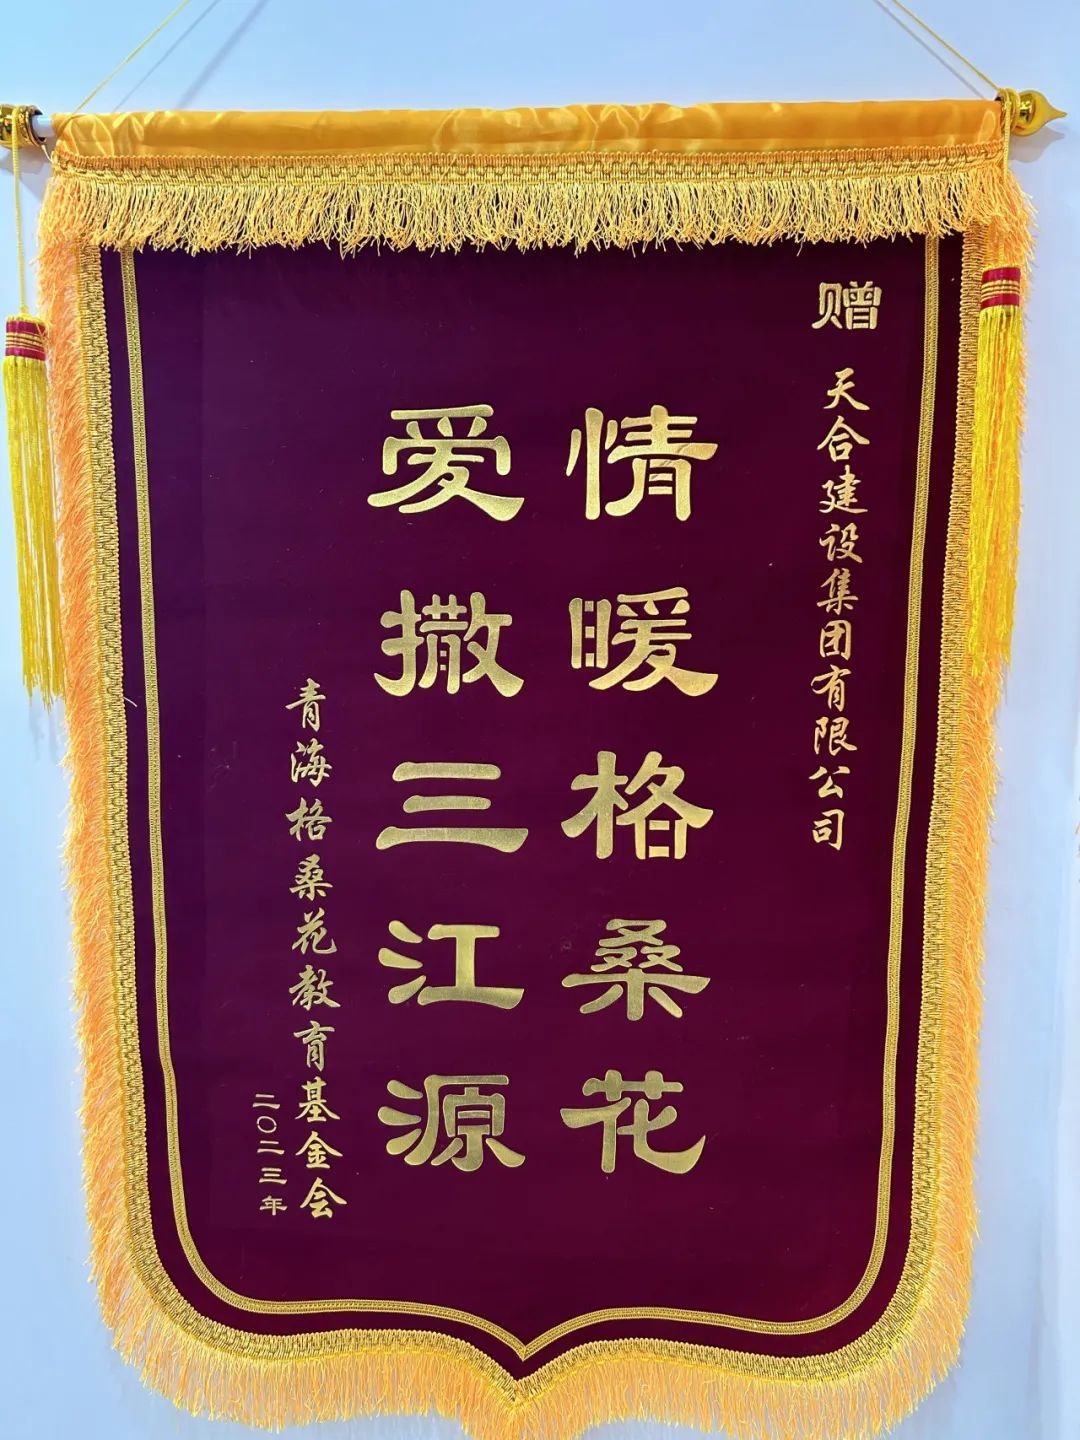 赠
天合建设集团有限公司
情暖格桑花
爱撒三江源
青海格桑花教育基金会
二〇二三年